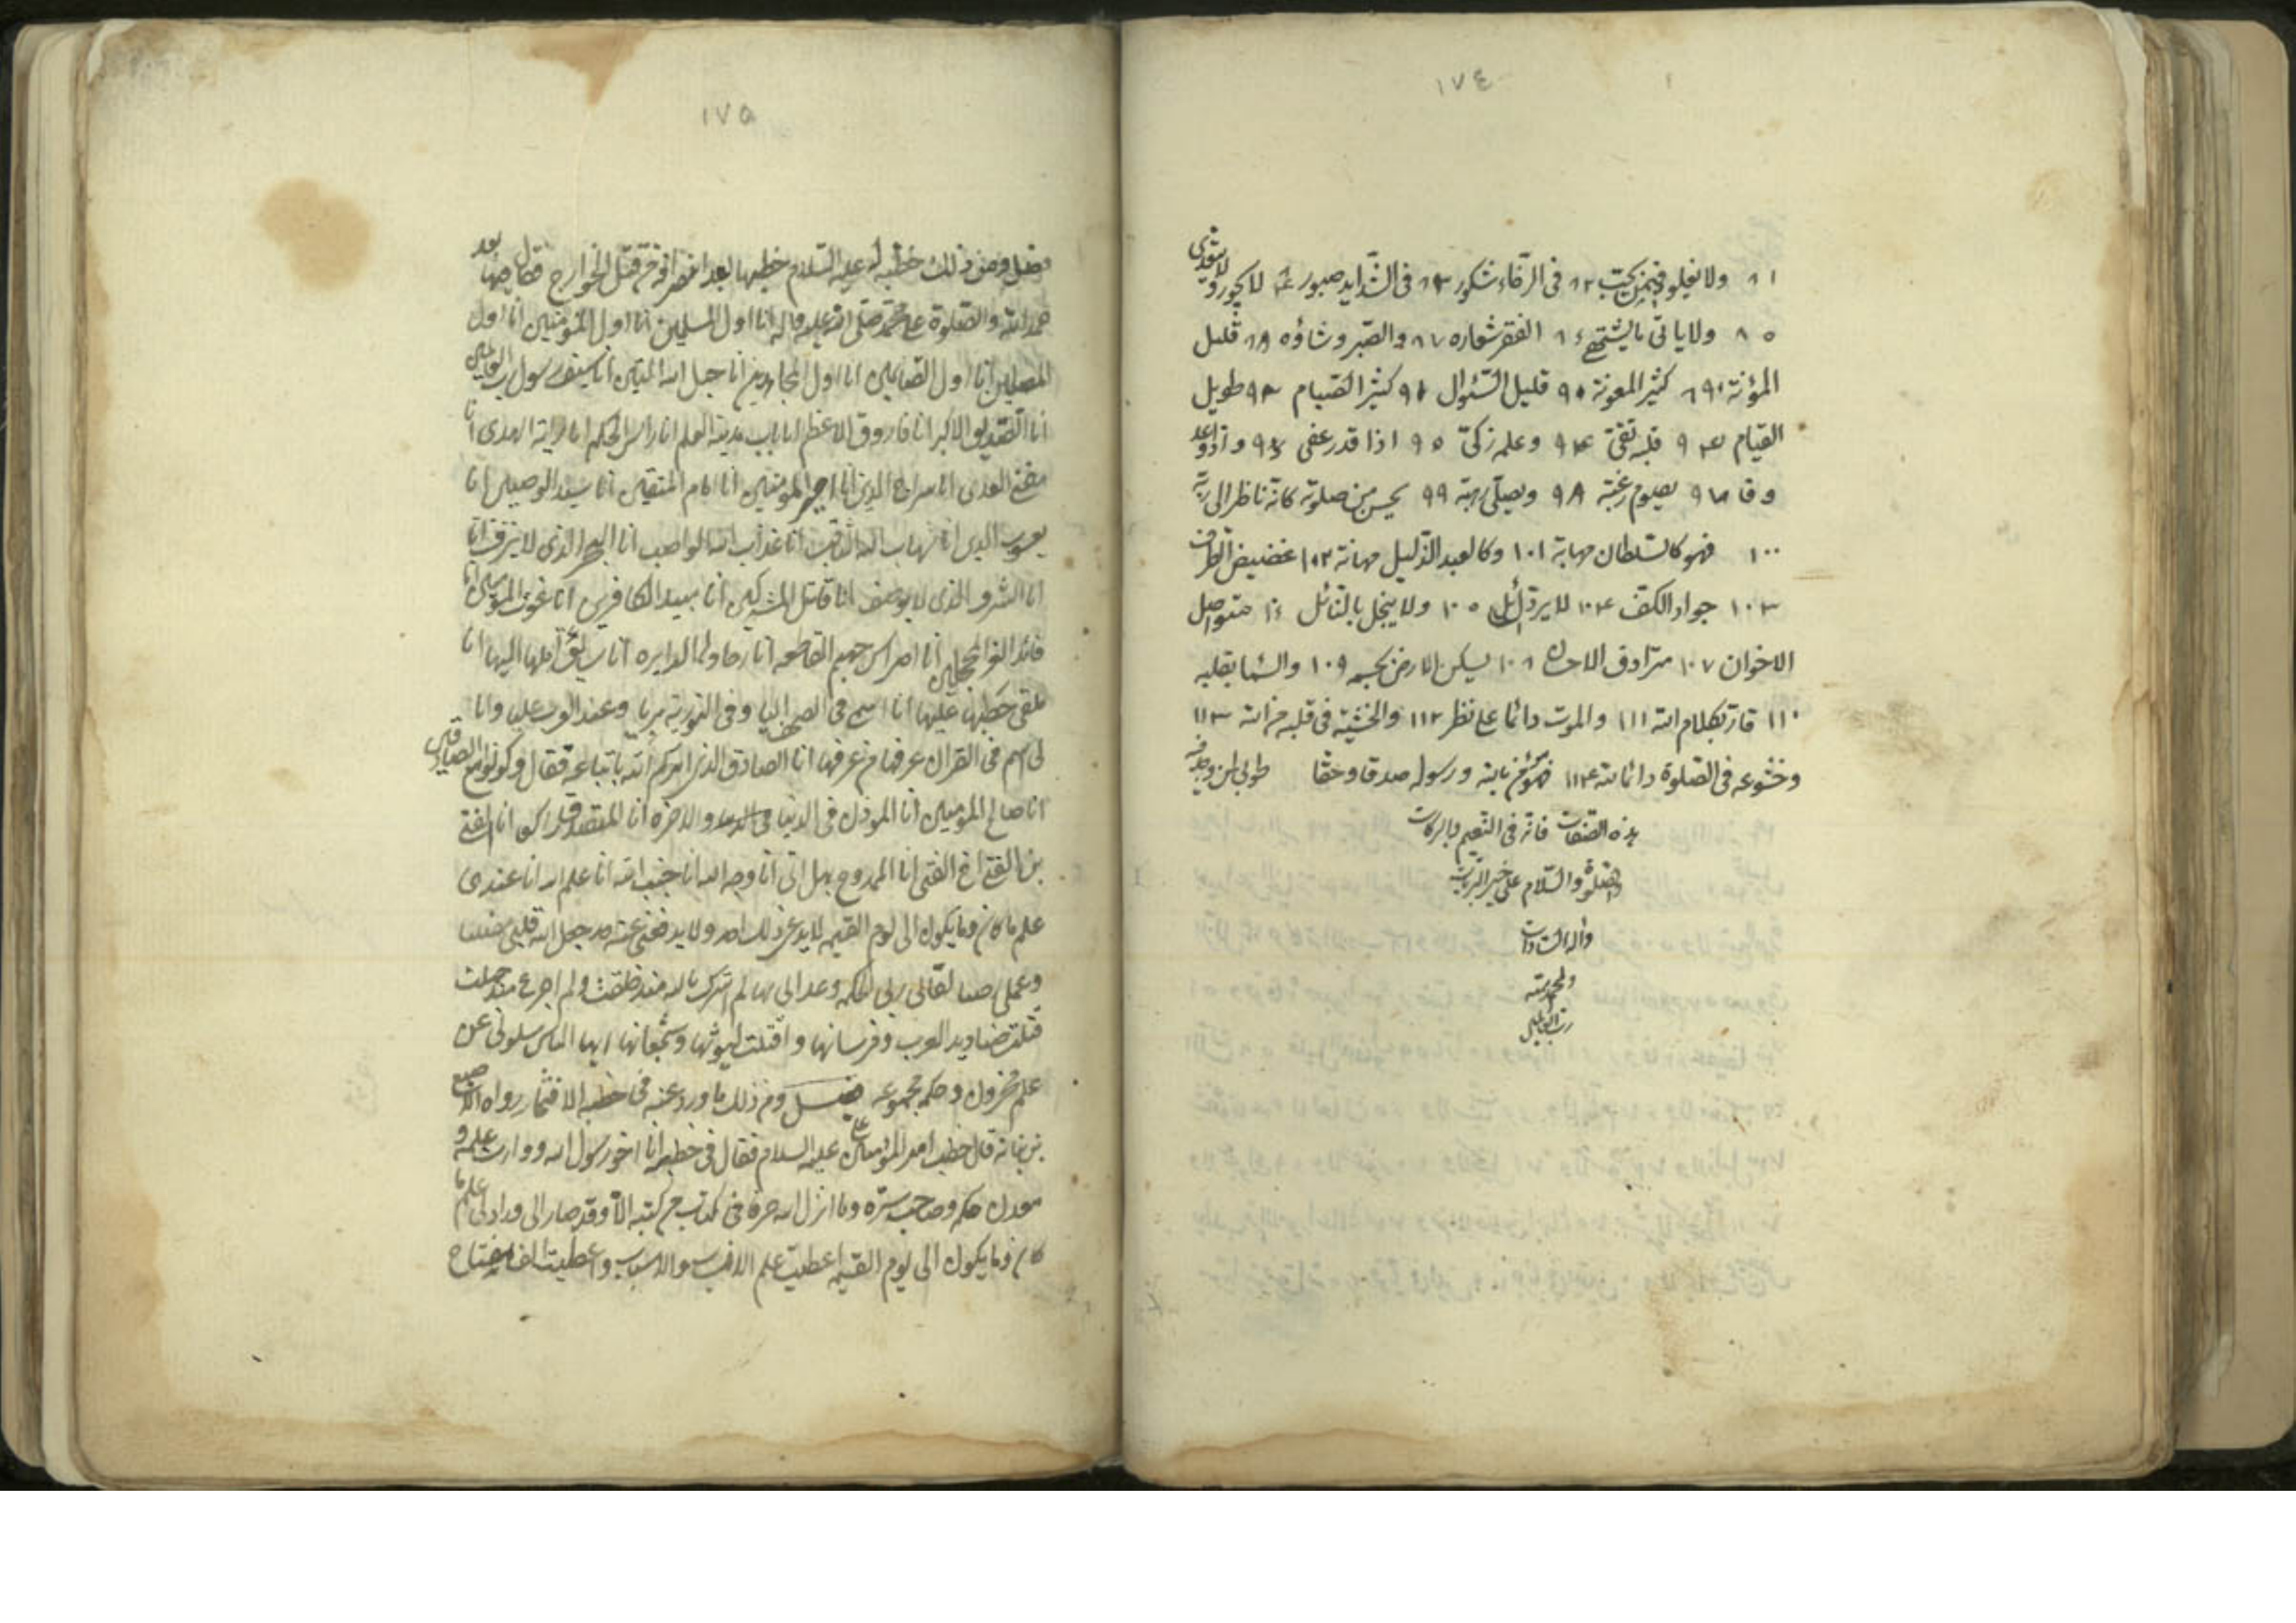 ١٧٤
٨١ ولا يغلو فيمن يحب ٨٢ في الرخاء شكور ٨٣ في الشدايد صبور ٨٤ لا يجور و لا يعتدي
٨٥ ولا ياتي بما يشتهي ٨٦ الفقر شعاره ٨٧ والصبر وشاؤه ٨٨ قليل
المؤنة ٨٩ كثير المعونة ٩٠ قليل السئوال ٩١ كثير الصيام ٩٢ طويل
القيام ٩٣ قلبه تقي ٩٤ وعلمه زكي ٩٥ اذا قدر عفى ٩٦ واذا وعد
وفا ٩٧ يصوم رغبة ٩٨ ويصلي رهبة ٩٩ يحسن صلوته كانه ناظر الى ربه
١٠٠ فهو كالسلطان مهابة ١٠١ وكالعبد الذليل مهانة ١٠٢ غضيض الطرف
١٠٣ جواد الكف ١٠٤ لا يرد السائل ١٠٥ ولا يبخل بالنائل ١٠٦ متواصل
الاخوان ١٠٧ مترادف الاحسان ١٠٨ يسكن الارض بجسمه ١٠٩ والسما بقلبه
١١٠ قارئ بكلام الله ١١١ والموت دائما على نظر ١١٢ والخشية في قلبه من الله ١١٣
وخشوعه في الصلوة دائما لله ١١٤ فهو مؤمن بالله ورسوله صدقا وحقا طوبى لمن وجد فيه
هذه الصفات فانه في النعيم والبركات
والصلوة والسلام على خير البريات
وآله السادات
والحمد لله
رب العالمين
١٧٥
فصل ومن ذلك خطبة له عليه السلام خطبها بعد انصرافه من قتل الخوارج فقال فيها بعد
حمد الله والصلوة على محمد صلى الله عليه واله انا اول المسلمين انا اول المؤمنين انا اول
المصلين انا اول الصائمين انا اول المجاهدين انا حبل الله المتين انا سيف رسول رب العالمين
انا الصديق الاكبر انا فاروق الاعظم انا باب مدينة العلم انا راس الحكم انا راية الهدى انا
مفتي العدى انا سراج الدين انا امير المؤمنين انا امام المتقين انا سيد الوصيين انا
يعسوب الدين انا شهاب الله الثاقب انا عذاب الله الواصب انا البحر الذي لا ينزف انا
انا الشرف الذي لا يوصف انا قاتل المشركين انا مبيد الكافرين انا غوث المؤمنين انا
قائد الغر المحجلين انا اضراس جهنم القاطعه انا رحاها الدايره انا سائق اهلها اليها انا
ملقي حطبها عليها انا اسمي في الصحف اليا وفي التورية بريا وعند العرب عليا وانا
لي اسم في القران عرفها من عرفها انا الصادق الذي امركم الله باتباعه فقال وكونوا مع الصادقين
انا صالح المؤمنين انا الموذن في الدنيا والاخره انا المتصدق راكعا انا الفتى
بن الفتى اخ الفتى انا الممدوح بهل اتى انا وجه الله انا جنب الله انا علم الله انا عندي
علم ما كان وما يكون الى يوم القيمه لا يدعي ذلك احد ولا يدفعني عنه احد جعل الله قلبي مضيئا
وعملي رضيا لقاني ربي الحكمه وغذاني بها لم اشرك بالله منذ خلقت ولم اجزع منذ حملت
قتلت صناديد العرب وفرسانها وافنيت ليوثها وشجعانها ايها الناس سلوني عن
علم مخزون وحكم مجموعه فصل ومن ذلك ما ورد عنه في خطبة الافتخار رواه الاصبغ
بن نباته قال خطب امير المؤمنين علي عليه السلام فقال في خطبه انا اخو رسول الله ووارث علمه و
معدن حكمه وصاحب سره وما انزل الله حرفا في كتاب من كتبه الا وقد صار الي وزاد لي علم ما
كان وما يكون الى يوم القيمه اعطيت علم الانساب والاسباب واعطيت الف مفتاح